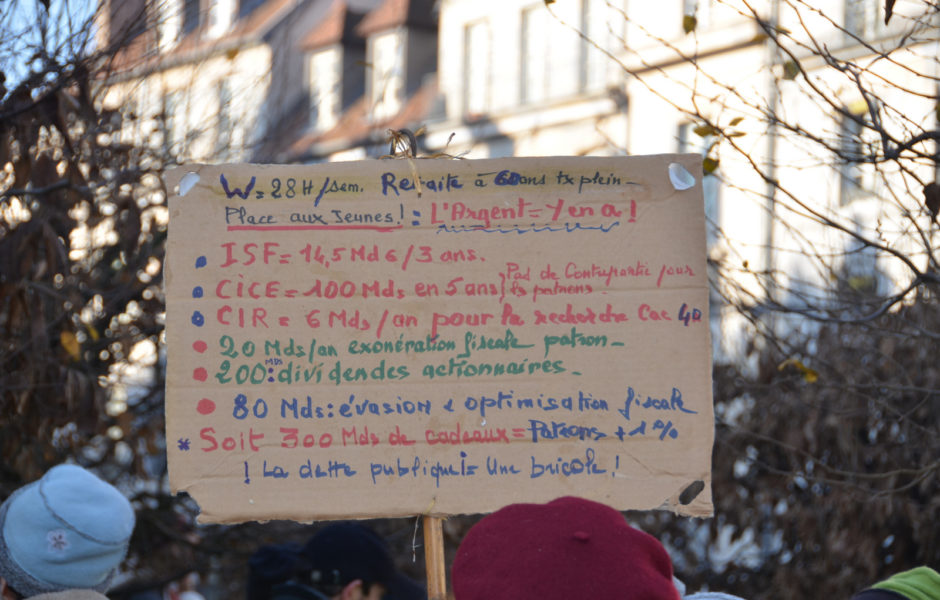 W = 28H/sem. Retraite à 60 ans tx plein -
Place aux Jeunes! : L'Argent = Y en a!
• ISF = 14,5 Md €/3 ans.
• CICE = 100 Mds en 5 ans/ Pas de Contrepartie pour
les patrons
• CIR = 6 Mds/an pour la recherche Cac 40
• 20 Mds/an exonération fiscale patron -
• 200 MDS : dividendes actionnaires -
• 80 Mds : évasion & optimisation fiscale
* Soit 300 Mds de cadeaux = Patrons + 1 %
! La dette publique = Une bricole !